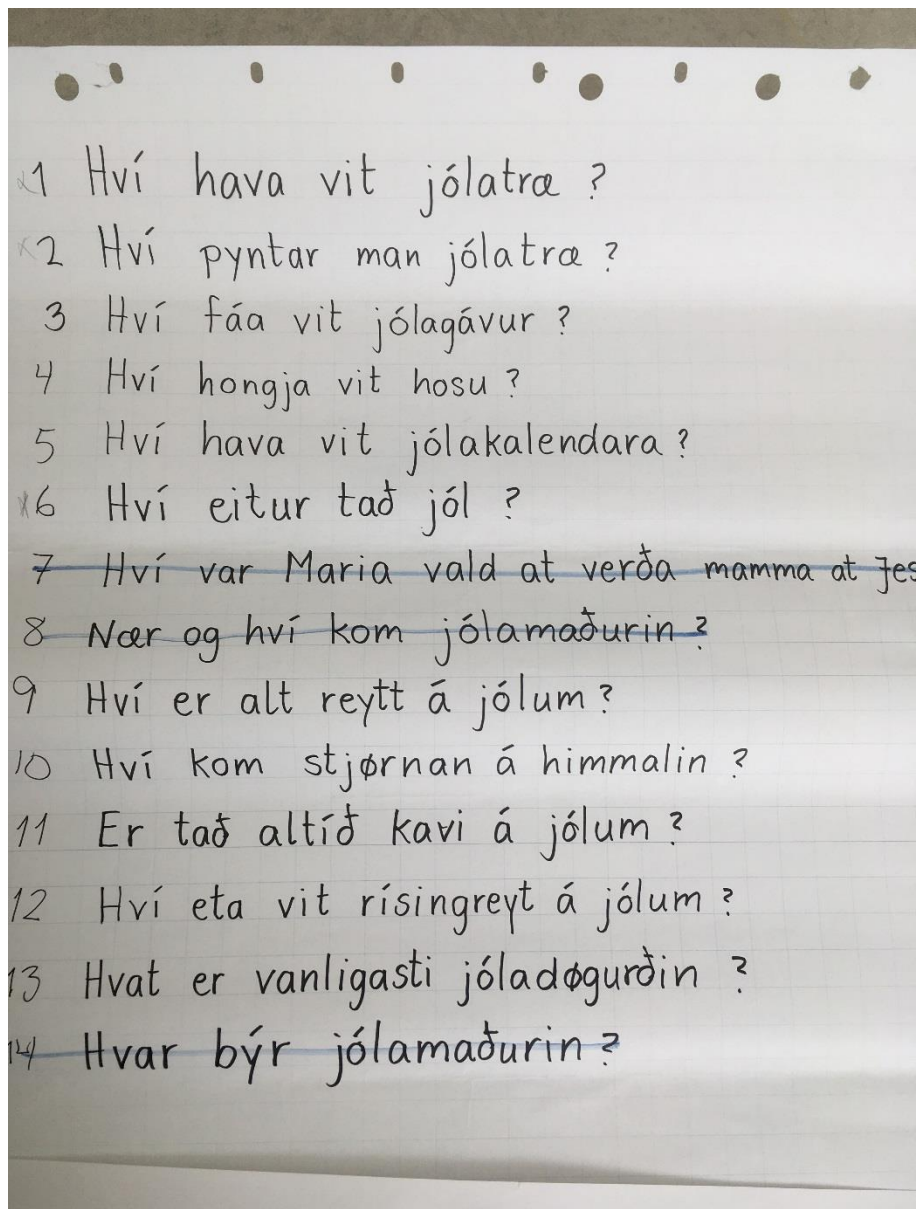 x1 Hví hava vit jólatræ ?
x2 Hví pyntar man jólatræ ?
3 Hví fáa vit jólagávur ?
4 Hví hongja vit hosu ?
5 Hví hava vit jólakalendara ?
x6 Hví eitur tað jól ?
7 Hví var Maria vald at verða mamma at Jes
8 Nær og hví kom jólamaðurin ?
9 Hví er alt reytt á jólum ?
10 Hví kom stjørnan á himmalin ?
11 Er tað altíð kavi á jólum ?
12 Hví eta vit rísingreyt á jólum ?
13 Hvat er vanligasti jóladøgurðin ?
14 Hvar býr jólamaðurin ?